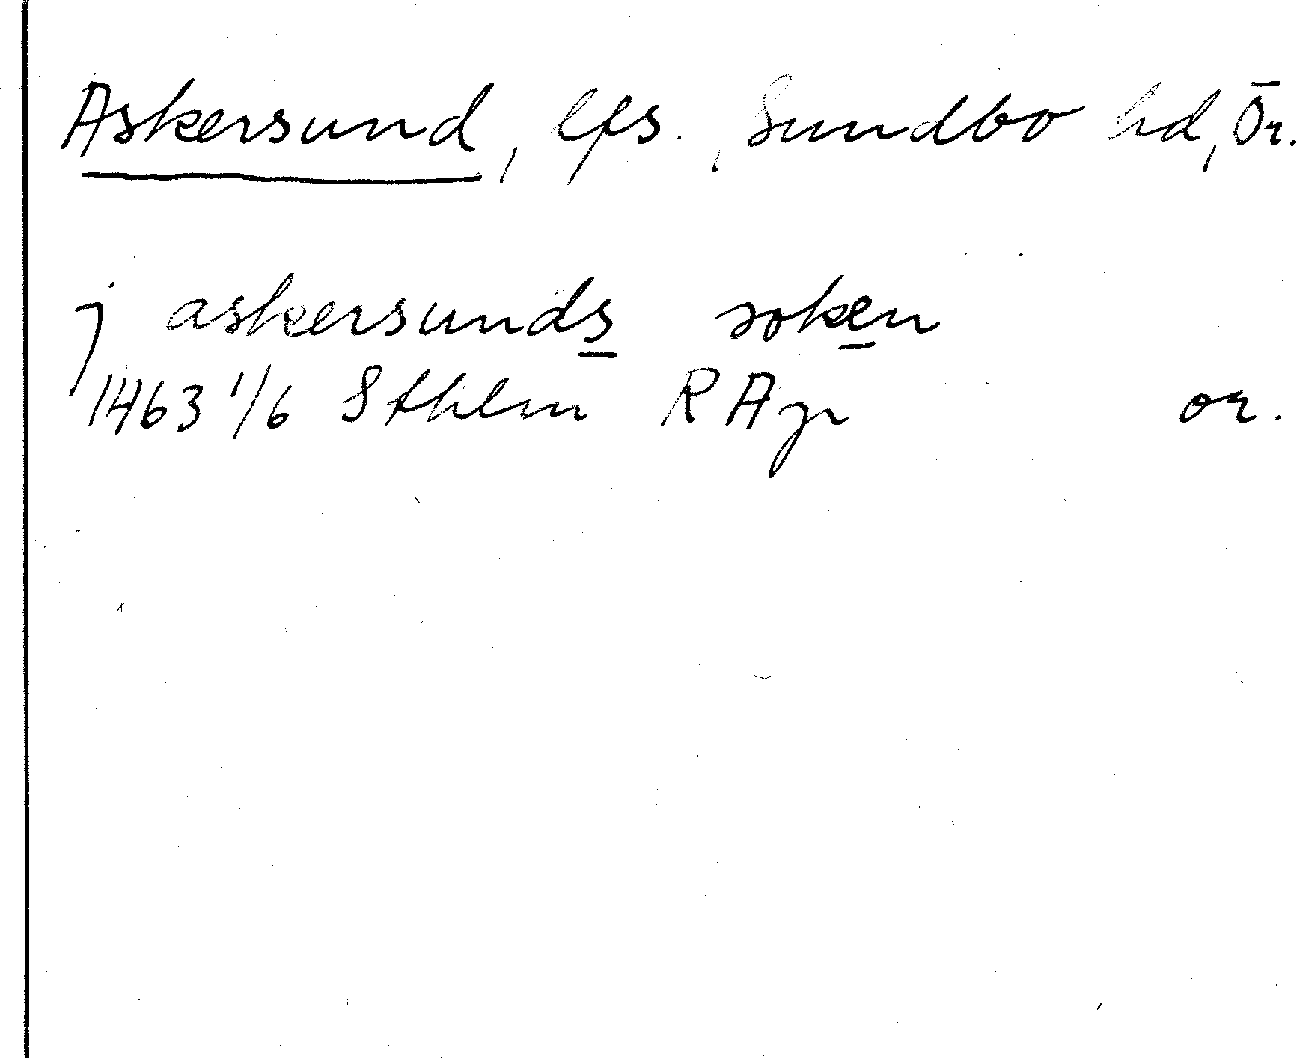 Askersund, lfs., Sundbo hd, Ör.
j askersunds soken
1463 1/6 Sthlm RAp or.